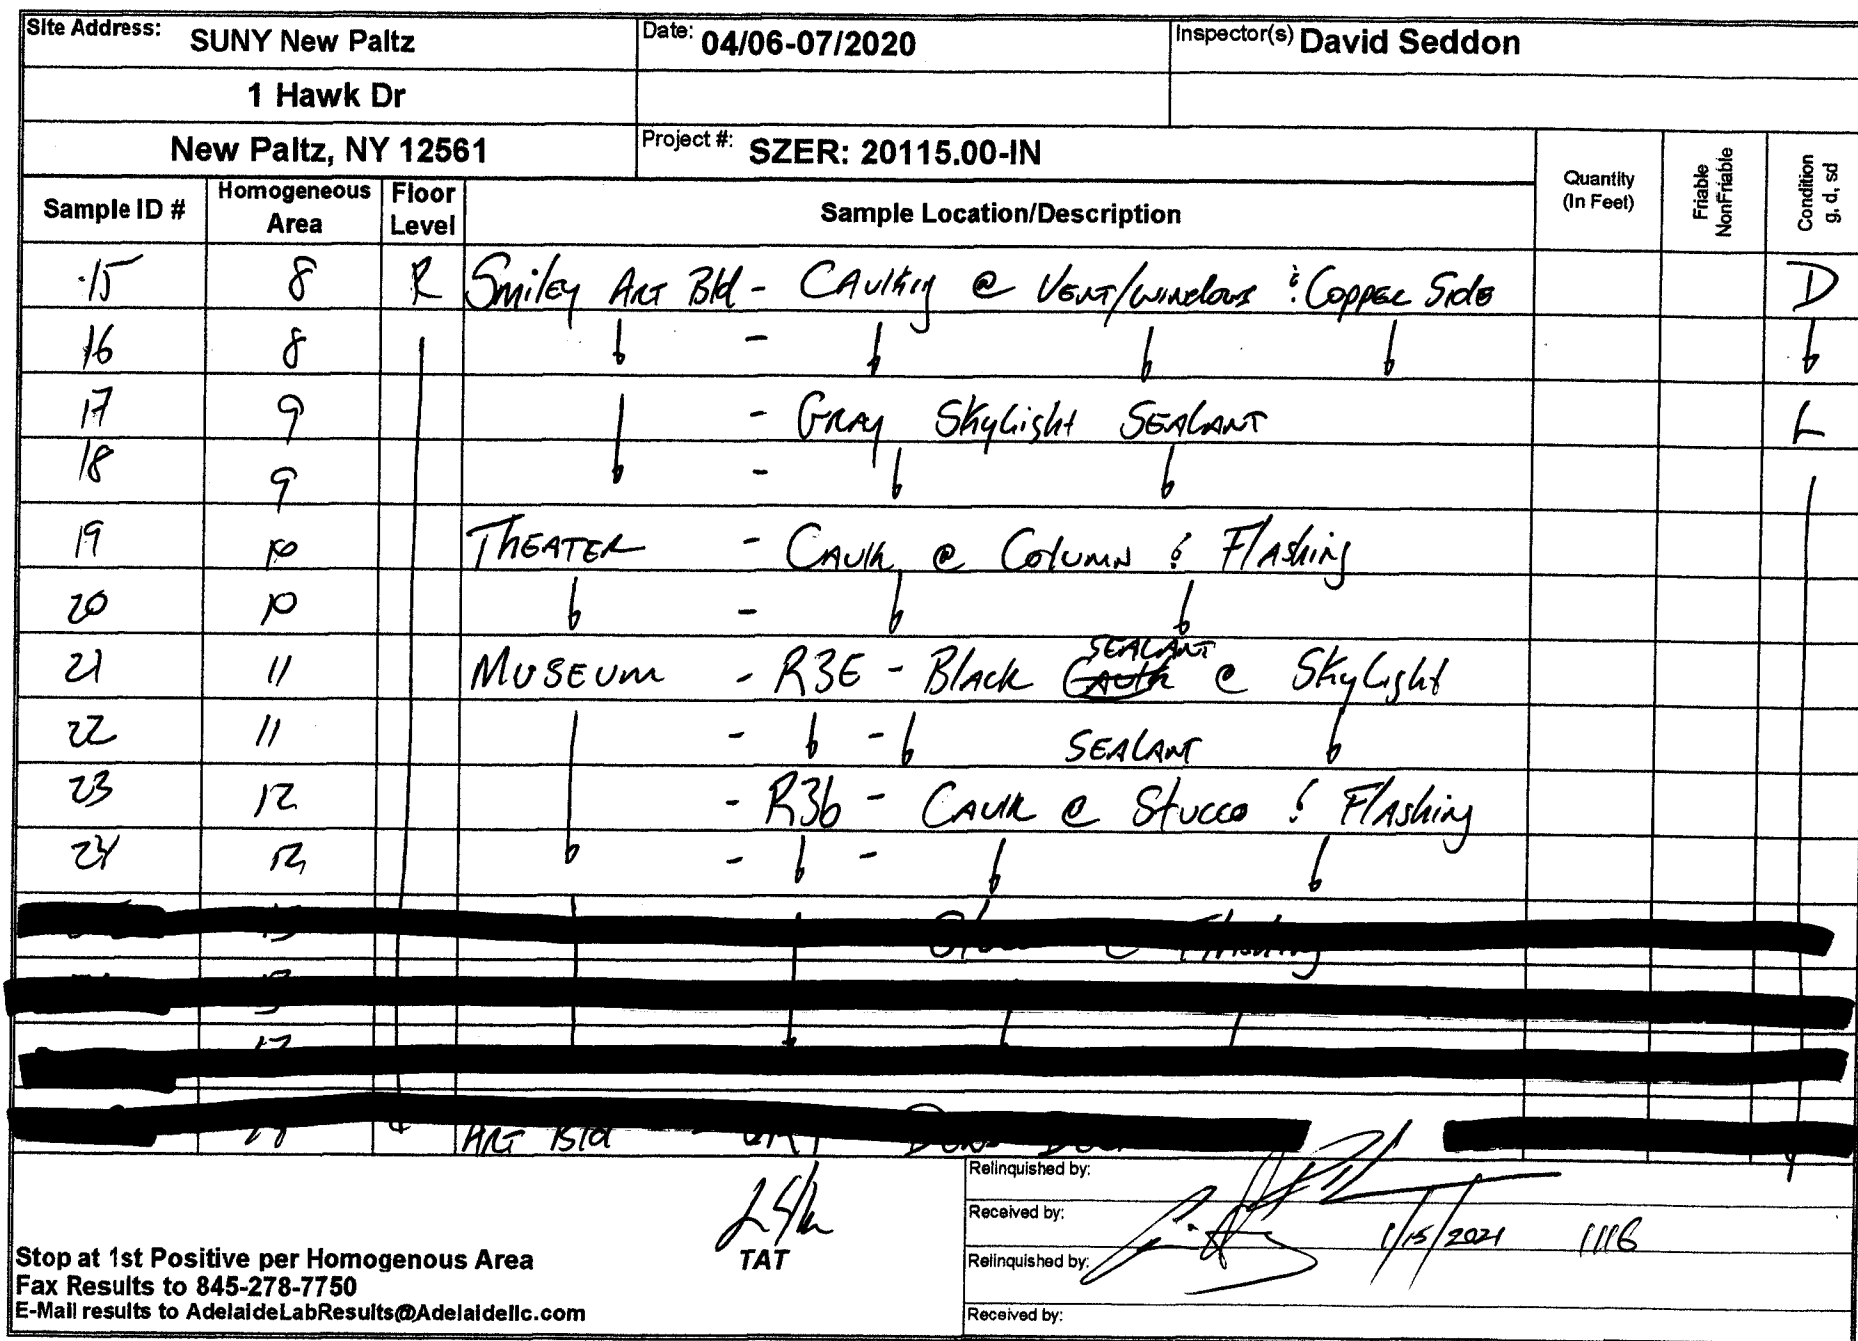 Site Address: SUNY New Paltz Date: 04/06-07/2020 Inspector(s) David Seddon
1 Hawk Dr
New Paltz, NY 12561 Project #: SZER: 20115.00-IN
Sample ID # Homogeneous Area Floor Level Sample Location/Description Quantity (In Feet) Friable NonFriable Condition g, d, sd
15 8 R Smiley Art Bld - Caulking @ Vent/Windows & Copper Side D
16 8 -
17 9 - Gray Skylight Sealant
18 9 -
19 10 Theater - Caulk @ Column & Flashing
20 10 -
21 11 Museum - R3E - Black Sealant @ Skylight
22 11 - - Sealant
23 12 - R3b - Caulk @ Stucco & Flashing
24 12 - -
Art Bld
TAT
Stop at 1st Positive per Homogenous Area
Fax Results to 845-278-7750
E-Mail results to AdelaideLabResults@Adelaidellc.com
Relinquished by:
Received by: 1/15/2021 1116
Relinquished by:
Received by: